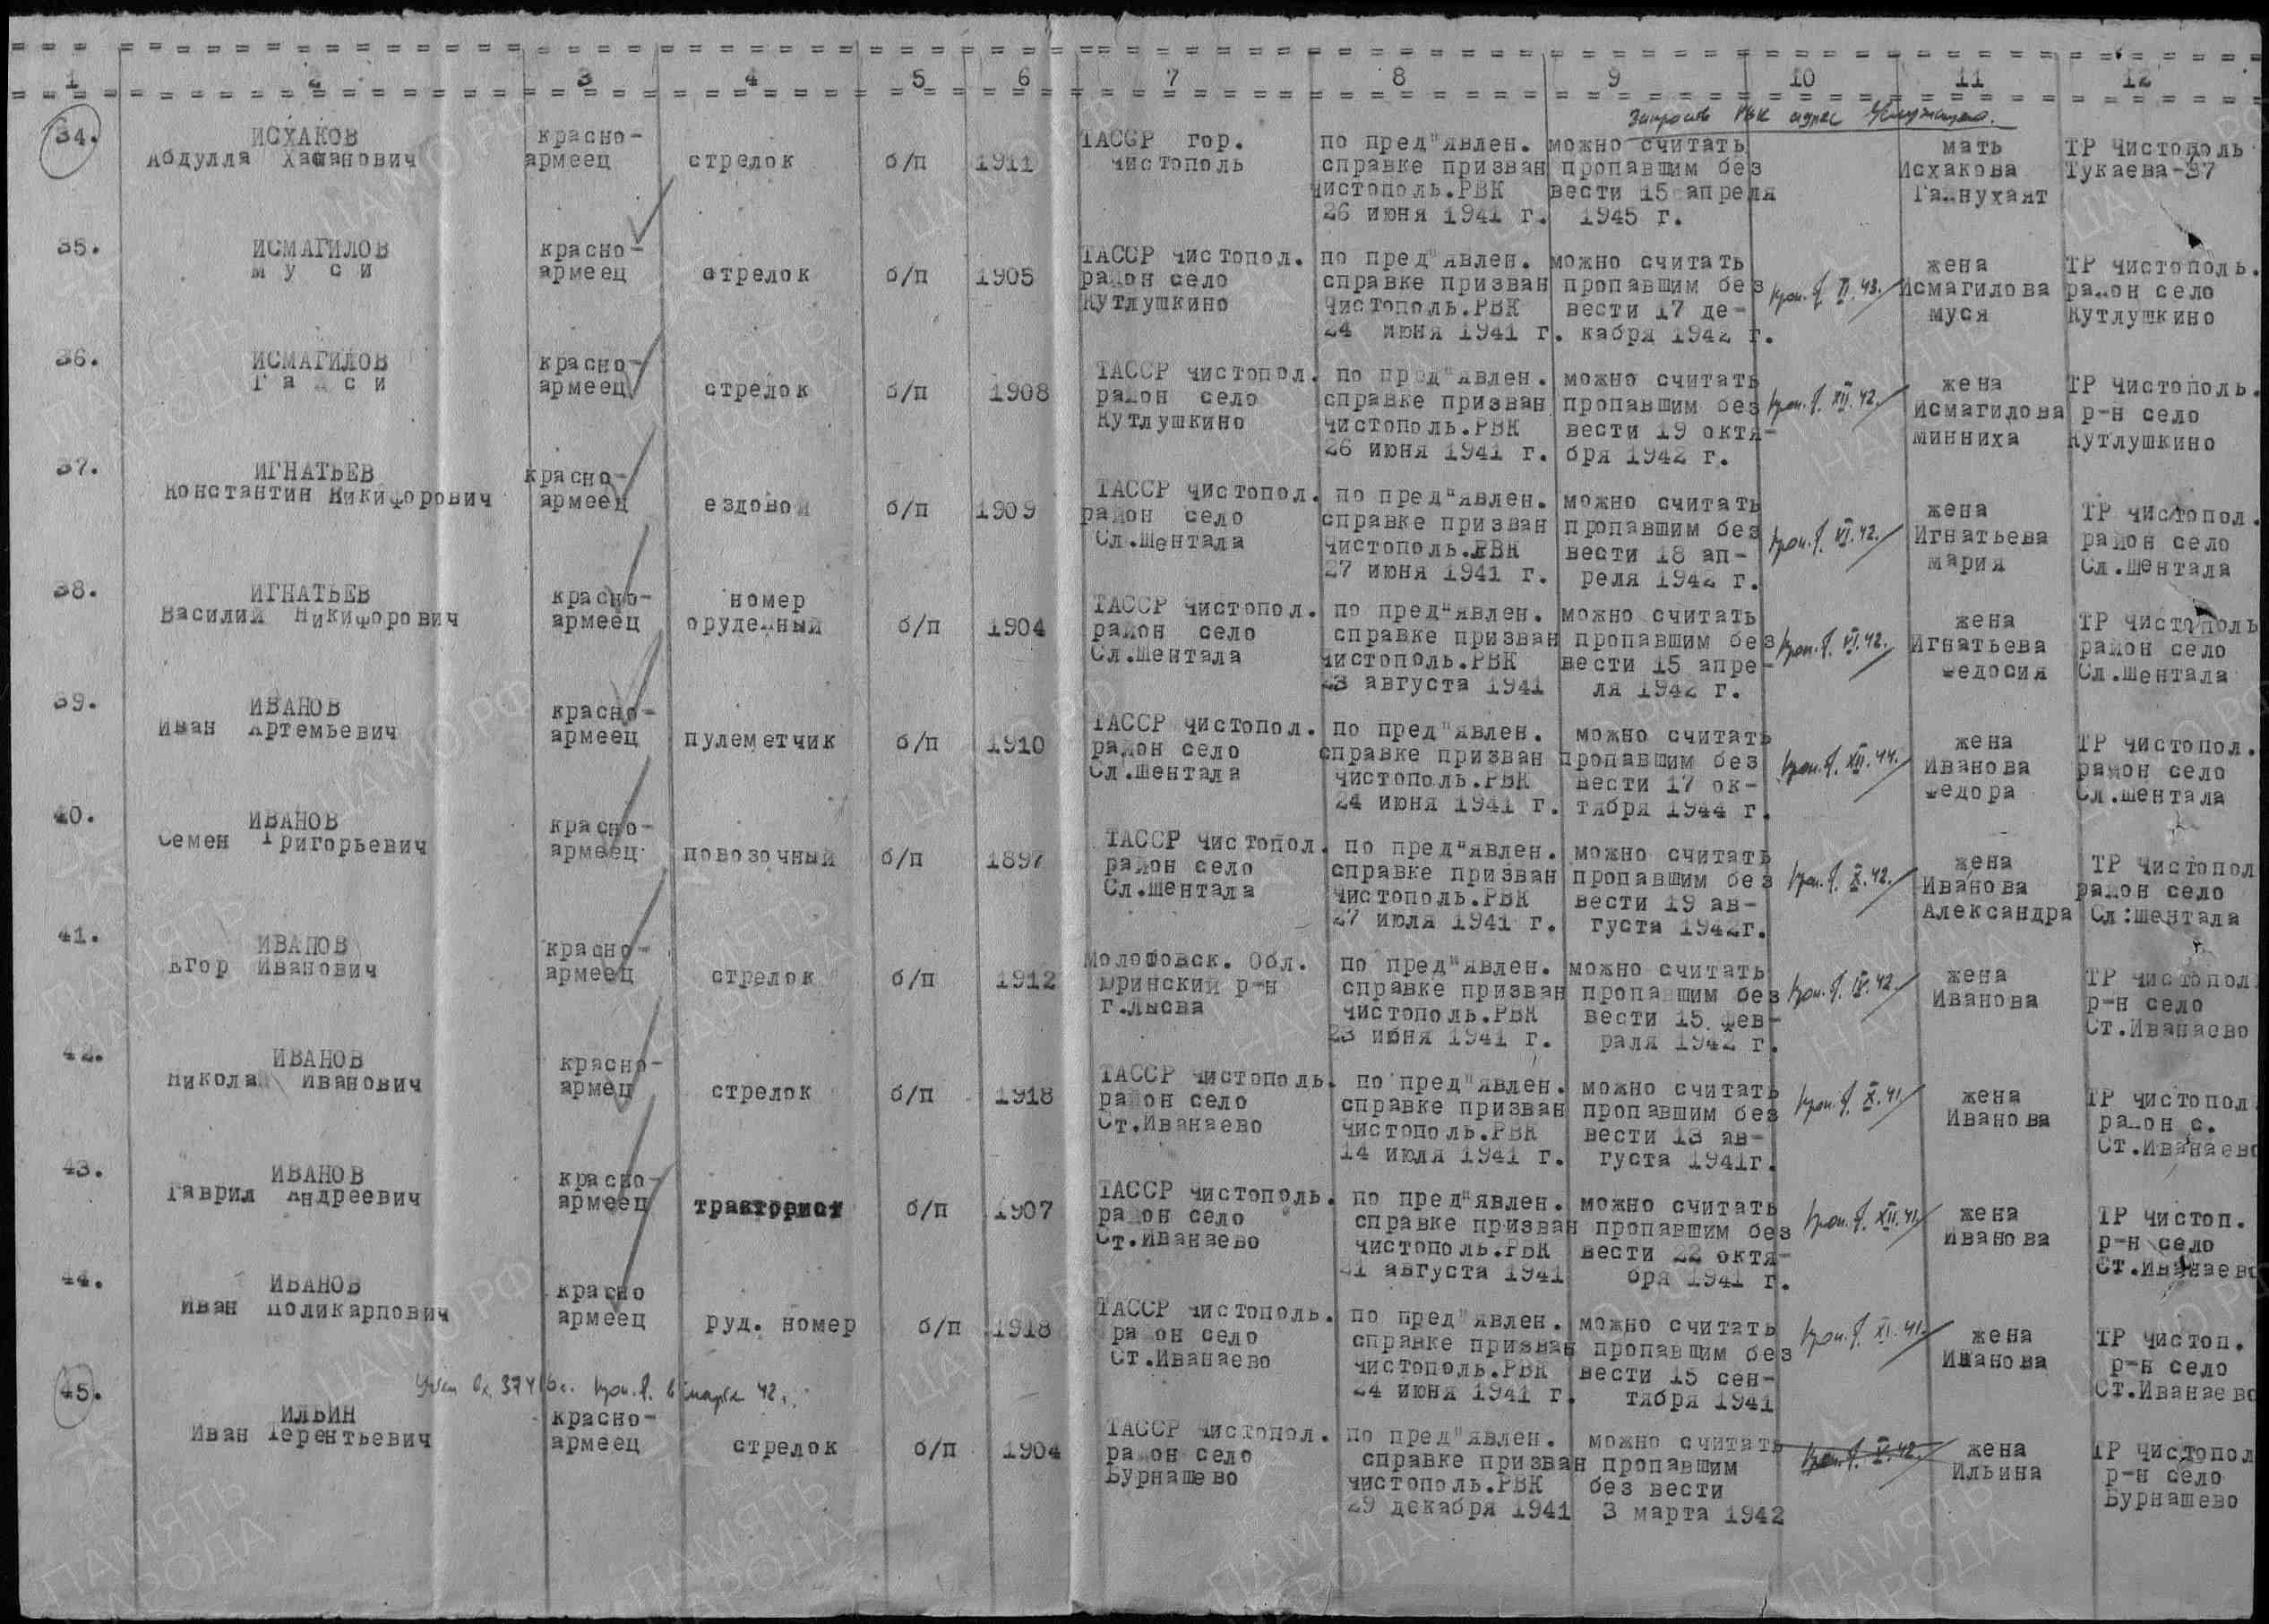 1 2 3 4 5 6 7 8 9 10 11 12
34.
ИСХАКОВ
Абдулла Хасанович
красно-
армеец
стрелок
б/п
1911
ТАССР гор.
Чистополь
по пред"явлен.
справке призван
Чистополь.РВК
26 июня 1941 г.
можно считать
пропавшим без
вести 15 апреля
1945 г.
РВК адрес
мать
Исхакова
ТР Чистополь
Тукаева-37
35.
ИСМАГИЛОВ
М у с и
красно-
армеец
стрелок
б/п
1905
ТАССР Чистопол.
район село
Кутлушкино
по пред"явлен.
справке призван
Чистополь.РВК
24 июня 1941 г.
можно считать
пропавшим без
вести 17 де-
кабря 1942 г.
проп. VI.43.
жена
Исмагилова
муся
ТР Чистополь.
район село
Кутлушкино
36.
ИСМАГИЛОВ
Г а й с и
красно-
армеец
стрелок
б/п
1908
ТАССР Чистопол.
район село
Кутлушкино
по пред"явлен.
справке призван
Чистополь.РВК
26 июня 1941 г.
можно считать
пропавшим без
вести 19 октя-
бря 1942 г.
проп. XII.42.
жена
Исмагилова
минниха
ТР Чистополь.
р-н село
Кутлушкино
37.
ИГНАТЬЕВ
Константин Никифорович
красно-
армеец
ездовой
б/п
1909
ТАССР Чистопол.
район село
Сл.Шентала
по пред"явлен.
справке призван
Чистополь.РВК
27 июня 1941 г.
можно считать
пропавшим без
вести 18 ап-
реля 1942 г.
проп. VI.42.
жена
Игнатьева
мария
ТР Чистопол.
район село
Сл.Шентала
38.
ИГНАТЬЕВ
Василий Никифорович
красно-
армеец
номер
орудейный
б/п
1904
ТАССР Чистопол.
район село
Сл.Шентала
по пред"явлен.
справке призван
Чистополь.РВК
23 августа 1941
можно считать
пропавшим без
вести 15 апре-
ля 1942 г.
проп. VI.42.
жена
Игнатьева
Федосия
ТР Чистополь
район село
Сл.Шентала
39.
ИВАНОВ
Иван Артемьевич
красно-
армеец
пулеметчик
б/п
1910
ТАССР Чистопол.
район село
Сл.Шентала
по пред"явлен.
справке призван
Чистополь.РВК
24 июня 1941 г.
можно считать
пропавшим без
вести 17 ок-
тября 1944 г.
проп. XII.44.
жена
Иванова
Федора
ТР Чистопол.
район село
Сл.Шентала
40.
ИВАНОВ
Семен Григорьевич
красно-
армеец
повозочный
б/п
1897
ТАССР Чистопол.
район село
Сл.Шентала
по пред"явлен.
справке призван
Чистополь.РВК
27 июля 1941 г.
можно считать
пропавшим без
вести 19 ав-
густа 1942г.
проп. X.42.
жена
Иванова
Александра
ТР Чистопол
район село
Сл:Шентала
41.
ИВАНОВ
Егор Иванович
красно-
армеец
стрелок
б/п
1912
Молотовск. Обл.
Юринский р-н
г.Лысва
по пред"явлен.
справке призван
Чистополь.РВК
23 июня 1941 г.
можно считать
пропавшим без
вести 15 фев-
раля 1942 г.
проп. IV.42.
жена
Иванова
ТР Чистопол
р-н село
Ст.Иванаево
42.
ИВАНОВ
Николай Иванович
красно-
армец
стрелок
б/п
1918
ТАССР Чистополь.
район село
Ст.Иванаево
по пред"явлен.
справке призван
Чистополь.РВК
14 июля 1941 г.
можно считать
пропавшим без
вести 13 ав-
густа 1941г.
проп. X.41.
жена
Иванова
ТР Чистопол
район с.
Ст.Иванаево
43.
ИВАНОВ
Гаврил Андреевич
красно-
армеец
тракторист
б/п
1907
ТАССР Чистополь.
район село
Ст.Иванаево
по пред"явлен.
справке призван
Чистополь.РВК
21 августа 1941
можно считать
пропавшим без
вести 22 октя-
бря 1941 г.
проп. XII.41
жена
Иванова
ТР Чистоп.
р-н село
Ст.Иванаево
44.
ИВАНОВ
Иван Поликарпович
красно
армеец
руд. номер
б/п
1918
ТАССР Чистополь.
район село
Ст.Иванаево
по пред"явлен.
справке призван
Чистополь.РВК
24 июня 1941 г.
можно считать
пропавшим без
вести 15 сен-
тября 1941
проп. XI.41.
жена
Иванова
ТР Чистоп.
р-н село
Ст.Иванаево
45.
проп. в марте 42.
ИЛЬИН
Иван Терентьевич
красно-
армеец
стрелок
б/п
1904
ТАССР Чистопол.
район село
Бурнашево
по пред"явлен.
справке призван
Чистополь.РВК
29 декабря 1941
можно считать
пропавшим
без вести
3 марта 1942
проп. V.42.
жена
Ильина
ТР Чистопол
р-н село
Бурнашево